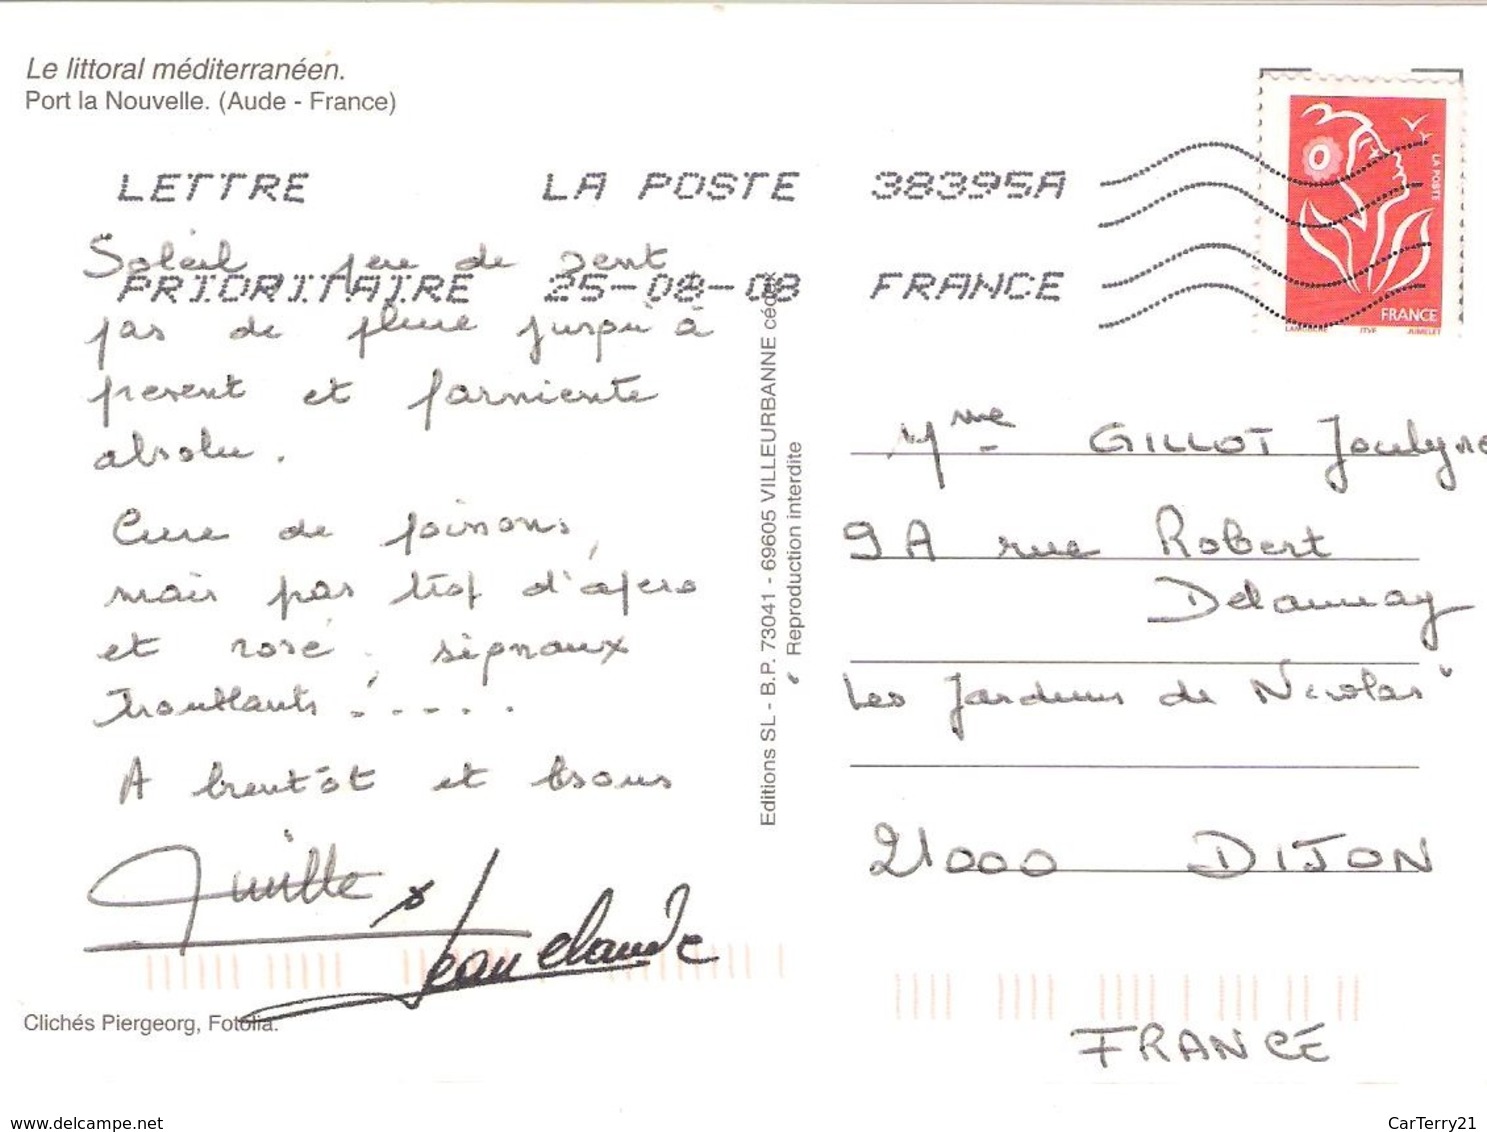 Le littoral méditerranéen.
Port la Nouvelle. (Aude - France)
LETTRE LA POSTE 38395A
PRIORITAIRE 25-08-08 FRANCE
Soleil peu de vent
pas de pluie jusqu'à
present et farniente
absolu.
Cure de poissons,
mais pas trop d'apero
et rosé, signaux
troublants !.....
A bientôt et bisous
Jean claude
Clichés Piergeorg, Fotolia.
Editions SL - B.P. 73041 - 69605 VILLEURBANNE cédex
Reproduction interdite
LA POSTE
FRANCE
LAMOUCHE ITVF JUMELET
Mme GILLOT Jocelyne
9A rue Robert
Delaunay
Les Jardins de Nicolas"
21000 DIJON
FRANCE
www.delcampe.net
CarTerry21